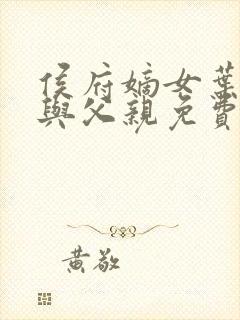 侯府嫡女葉
與父親免費
黃敬